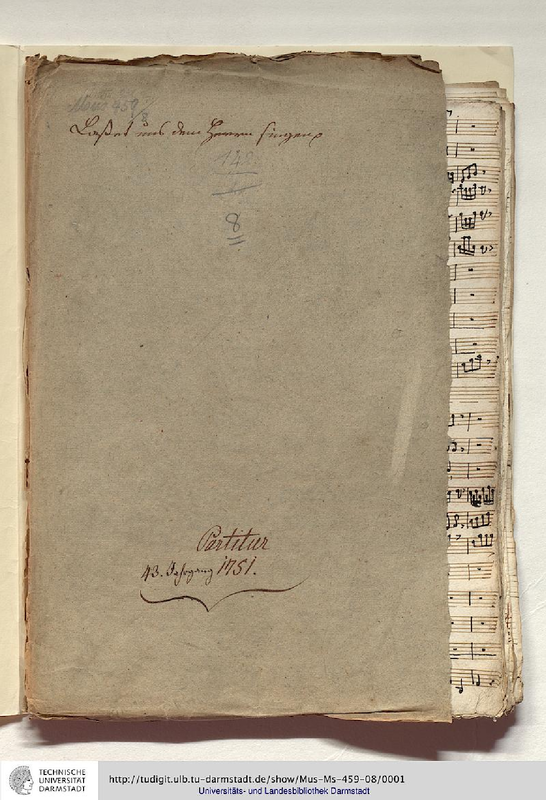 Mus 459/8
Laßet uns dem Herrn singen
142
8
Partitur
43. Jahrgang 1751.
TECHNISCHE
UNIVERSITÄT
DARMSTADT
http://tudigit.ulb.tu-darmstadt.de/show/Mus-Ms-459-08/0001
Universitäts- und Landesbibliothek Darmstadt